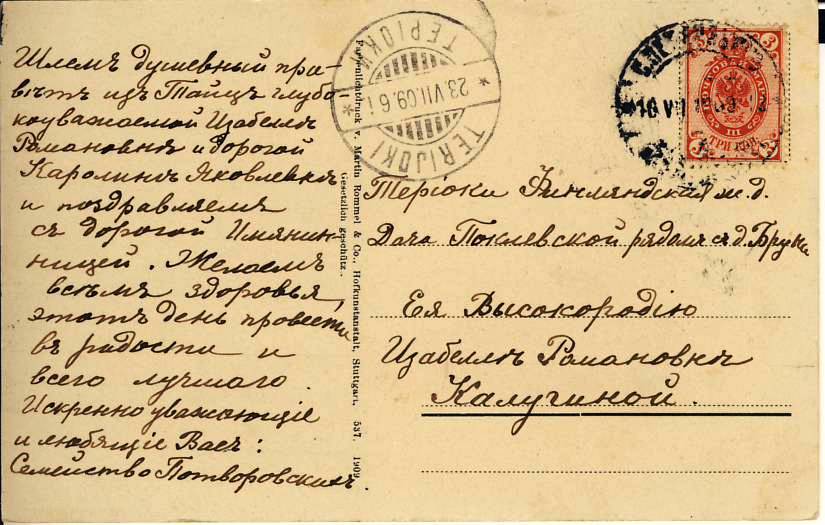 Шлемъ душевный при-
вѣтъ изъ Таицъ глубо-
коуважаемой Изабеллѣ
Романовнѣ и дорогой
Каролинѣ Яковлевнѣ
и поздравляемъ
съ дорогой Имянин-
ницей. Желаемъ
всѣмъ здоровья,
этотъ день провести
въ радости и
всего лучшаго.
Искренно уважающіе
и любящіе Васъ:
Семейство Потворовскихъ.
Farbenlichtdruck v. Martin Rommel & Co., Hofkunstanstalt, Stuttgart. 537. 1909.
Gesetzlich geschützt.
ТЕРІОКИ
23.VII.09.6 i
TERIJOKI
3
ТРИ КОП.
Теріоки Финляндская ж.д.
Дача Поклевской рядомъ съ д.
Ея Высокородію
Изабеллѣ Романовнѣ
Калугиной.